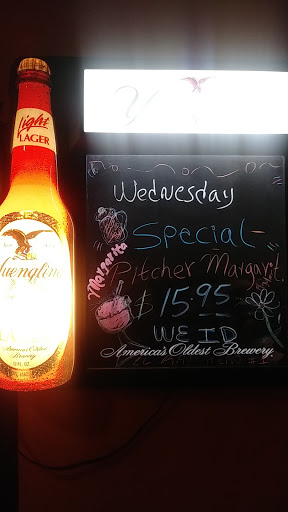 Light
LAGER
Yuengling
Wednesday
Special-
Pitcher Margarit
Margarita
$15.95
WE ID
America's Oldest Brewery
America's Oldest
Brewery